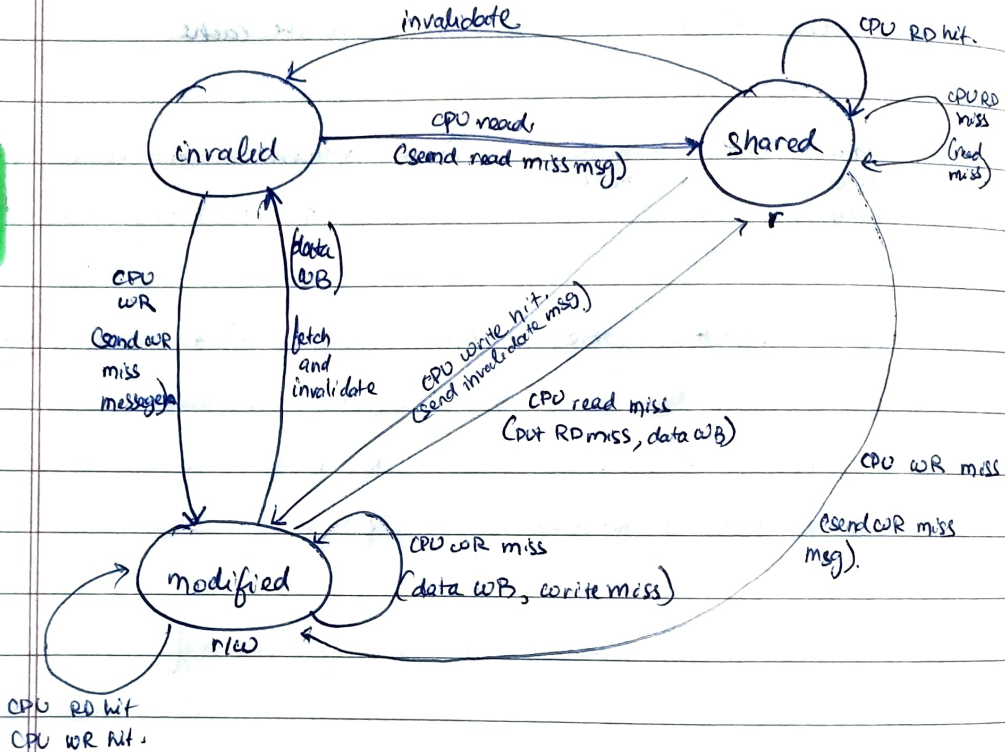 invalidate
CPU RD hit.
CPU RD
miss
(read
miss)
CPU read
(send read miss msg)
invalid
shared
r
CPU
WR
(send WR
miss
message)
(data
WB)
fetch
and
invalidate
CPU write hit.
(send invalidate msg)
CPU read miss
(put RD miss, data WB)
CPU WR miss
(send WR miss
msg).
CPU WR miss
(data WB, write miss)
modified
r/w
CPU RD hit
CPU WR hit.